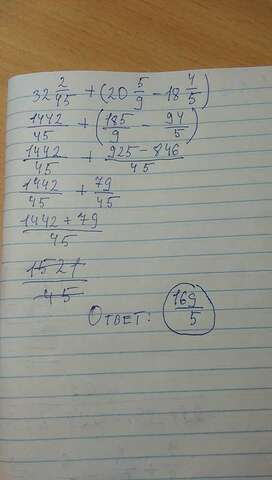 32 2/45 + (20 5/9 - 18 4/5)
1442/45 + (185/9 - 94/5)
1442/45 + 925-846/45
1442/45 + 79/45
1442+79/45
1521/45
Ответ: 169/5